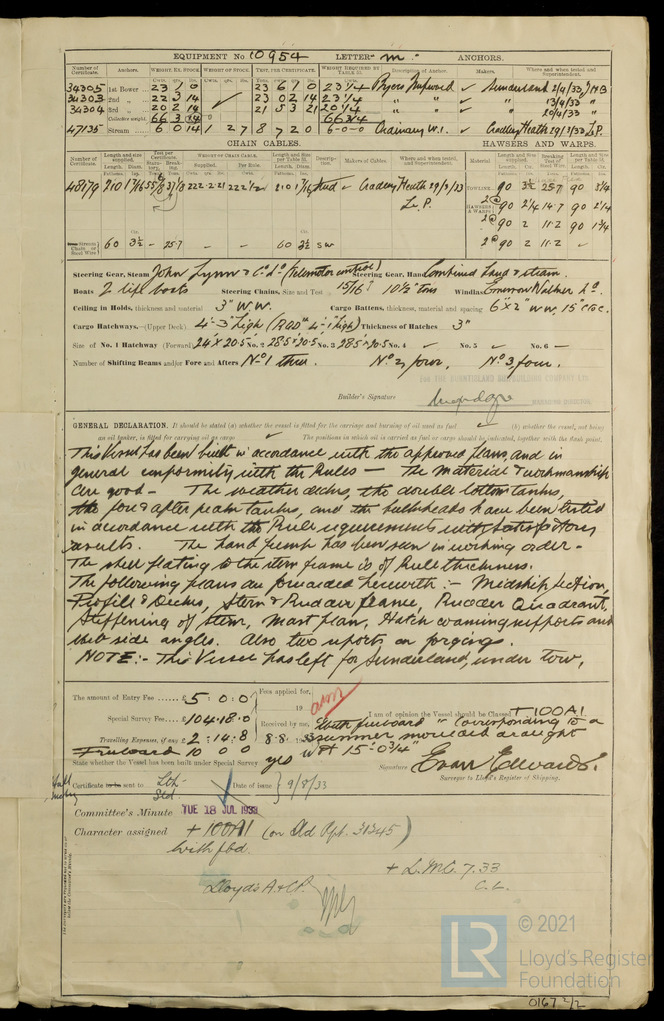 EQUIPMENT No 10954 LETTER "m" ANCHORS.
Number of Certificate. Anchors. WEIGHT, EX. STOCK. WEIGHT OF STOCK. TEST, PER CERTIFICATE. WEIGHT REQUIRED BY TABLE 31. Description of Anchor. Makers. Where and when tested and Superintendent.
34305 1st Bower 23 1 0 23 6 1 0 23 1/4 Byers Improved ✓ Sunderland 2/4/33
34303 2nd " 22 3 14 ✓ 23 0 2 14 23 1/4 " " ✓ " 13/4/33 "
34304 3rd " 20 2 14 21 5 3 21 20 1/4 " " ✓ " 20/4/33 "
Collective weight. 66 3 14 66 3/4
47135 Stream 6 0 14 1 2 7 8 7 2 0 6-0-0 Ordinary W.I. ✓ Cradley Heath 29/3/33 L.P.
CHAIN CABLES. HAWSERS AND WARPS.
Number of Certificate. Length and size supplied. Test per Certificate. WEIGHT OF CHAIN CABLE. Length and size per Table 31. Description. Makers of Cables. Where and when tested, and Superintendent. Material Length and size supplied. Breaking Test of Length and size per Table 31.
48179 210 1 7/16 222.2.21 222 1/2 210 1 7/16 Stud ✓ Cradley Heath 29/3/33
L.P.
TOWLINE 90 3 1/2 25.7 90 3/4
HAWSERS & WARPS 2@ 90 2 1/4 14.7 90 2 1/4
2@ 90 2 11.2 90 1 3/4
2@ 90 2 11.2 ✓
Stream Chain or Steel Wire 60 3 1/2 - 25.7 - - 60 3 1/2 S.W
Steering Gear, Steam John Lynn & Co Ld (Telemotor control) Steering Gear, Hand Combined hand & steam.
Boats 2 life boats Steering Chains, Size and Test 15/16" 10 1/2 tons Windlass Emerson Walker Ld.
Ceiling in Holds, thickness and material 3" W.W. Cargo Battens, thickness, material and spacing 6" x 2" W.W. 15" C to C.
Cargo Hatchways.—(Upper Deck) 4'-3" high (RQD 4'-1" high) Thickness of Hatches 3"
Size of No. 1 Hatchway (Forward) 24' x 20.5' No. 2 28.5 x 20.5 No. 3 28.5 x 20.5 No. 4 ✓ No. 5 ✓ No. 6 —
Number of Shifting Beams and/or Fore and Afters No 1 three. No 2, four, No 3, four.
FOR THE BURNTISLAND SHIPBUILDING COMPANY LTD.
Builder's Signature
MANAGING DIRECTOR
GENERAL DECLARATION. It should be stated (a) whether the vessel is fitted for the carriage and burning of oil used as fuel ✓ (b) whether the vessel, not being
an oil tanker, is fitted for carrying oil as cargo ✓ The positions in which oil is carried as fuel or cargo should be indicated, together with the flash point.
This Vessel has been built in accordance with the approved plans and in
general conformity with the Rules — The material & workmanship
are good — The weather decks, the double bottom tanks,
the fore & after peak tanks, and the bulkheads have been tested
in accordance with the Rule requirements with satisfactory
results. The hand pump has been seen in working order —
The shell plating to the stern frame is of Rule thickness.
The following plans are forwarded herewith :— Midship Section,
Profile & Decks, Stern & Rudder frame, Rudder Quadrant,
Stiffening of Stem, Mast plan, Hatch coaming supports and
web side angles. Also two reports on forgings.
NOTE:- This Vessel has left for Sunderland under tow.
The amount of Entry Fee ...... £ 5 : 0 : 0 Fees applied for,
19
Special Survey Fee.... £ 104 : 18 : 0 Received by me, I am of opinion the Vessel should be Classed + 100A1
Travelling Expenses, if any £ 2 : 14 : 8 8.8. 1933 with freeboard corresponding to a
summer moulded draught
Freeboard 10 0 0 of 15'-0 3/4"
State whether the Vessel has been built under Special Survey yes Signature Evan Edwards
Surveyor to Lloyd's Register of Shipping.
Certificate to be sent to Lth Date of issue 9/8/33
Sld
Committee's Minute TUE 18 JUL 1933
Character assigned + 100A1 (on Sld Rpt. 31345)
with fbd.
+ L.M.C. 7.33
C.L.
Lloyds A & CP.
© 2021
LR Lloyd's Register
Foundation
0167 2/2